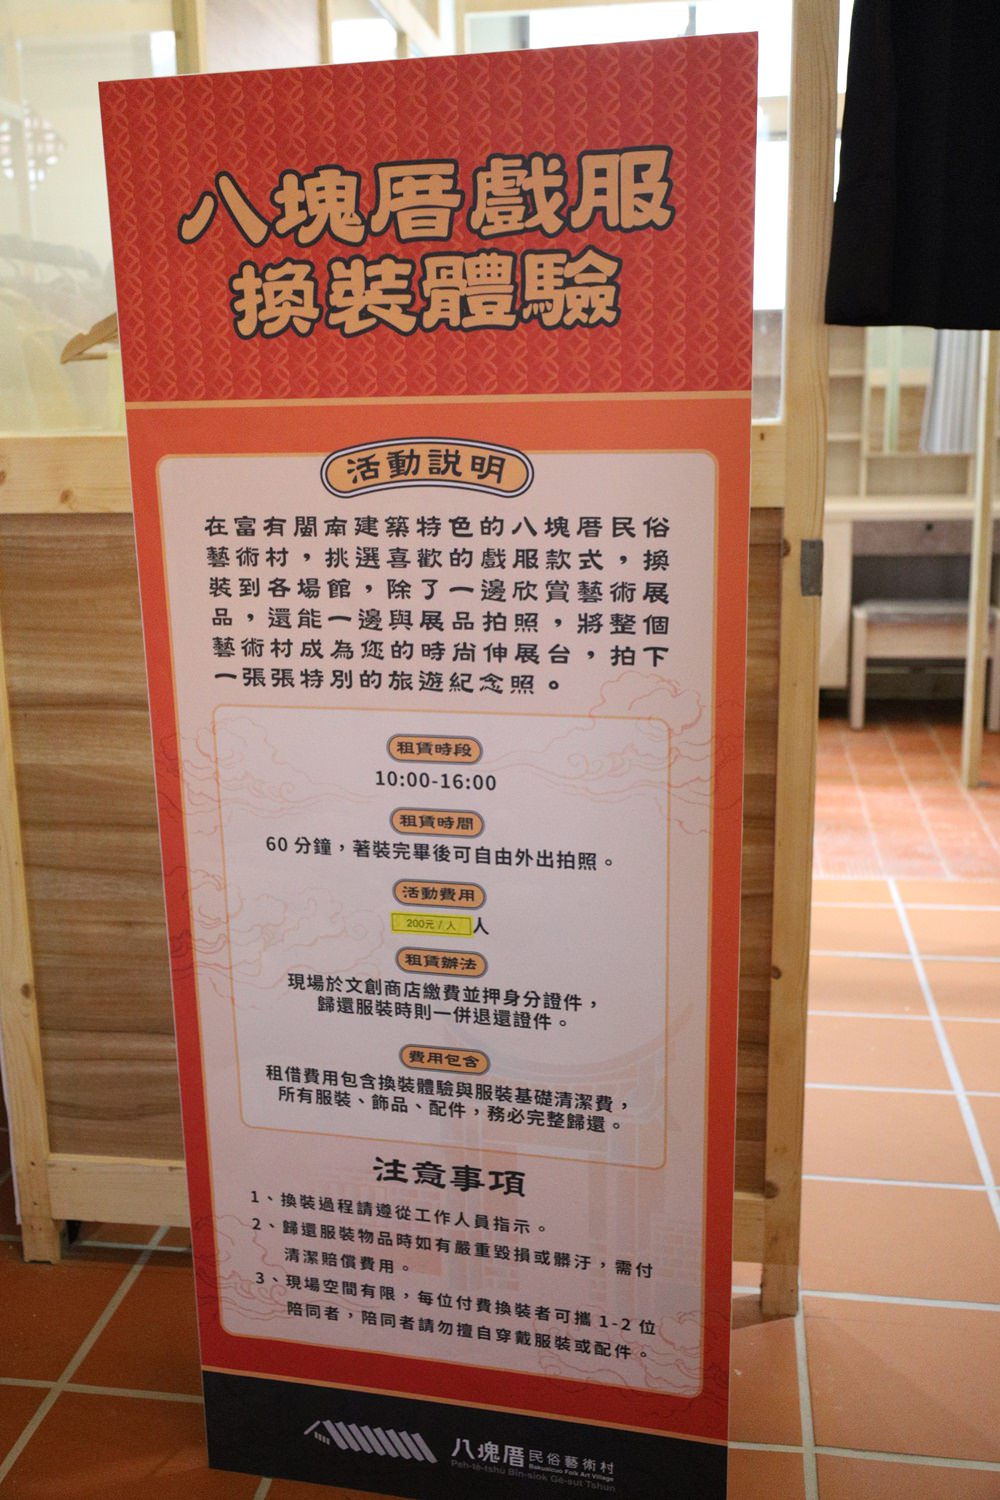 八塊厝戲服
換裝體驗
活動說明
在富有閩南建築特色的八塊厝民俗
藝術村，挑選喜歡的戲服款式，換
裝到各場館，除了一邊欣賞藝術展
品，還能一邊與展品拍照，將整個
藝術村成為您的時尚伸展台，拍下
一張張特別的旅遊紀念照。
租賃時段
10:00-16:00
租賃時間
60 分鐘，著裝完畢後可自由外出拍照。
活動費用
200元 / 人 人
租賃辦法
現場於文創商店繳費並押身分證件，
歸還服裝時則一併退還證件。
費用包含
租借費用包含換裝體驗與服裝基礎清潔費，
所有服裝、飾品、配件，務必完整歸還。
注意事項
1、換裝過程請遵從工作人員指示。
2、歸還服裝物品時如有嚴重毀損或髒汙，需付
清潔賠償費用。
3、現場空間有限，每位付費換裝者可攜 1-2 位
陪同者，陪同者請勿擅自穿戴服裝或配件。
八塊厝 民俗藝術村
Bakuaicuo Folk Art Village
Peh-tè-tshù Bîn-sio̍k Gē-su̍t Tshun